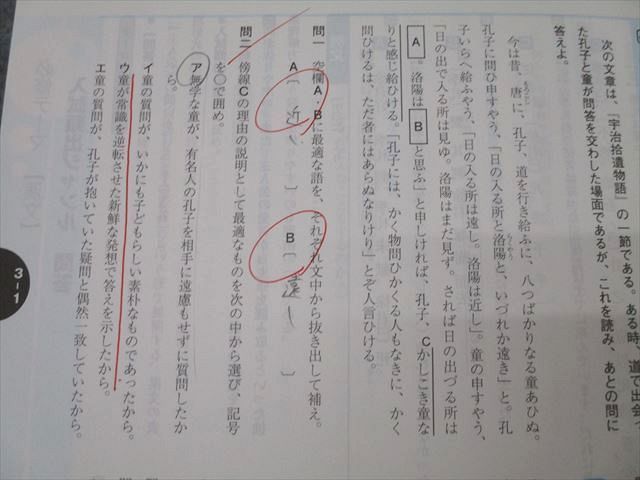 次の文章は、『宇治拾遺物語』の一節である。ある時、道で出会っ
た孔子と童が問答を交わした場面であるが、これを読み、あとの問に
答えよ。
今は昔、唐に、孔子、道を行き給ふに、八つばかりなる童あひぬ。
孔子に問ひ申すやう、「日の入る所と洛陽と、いづれか遠き」と。孔
子いらへ給ふやう、「日の入る所は遠し。洛陽は近し」。童の申すやう、
「日の出で入る所は見ゆ。洛陽はまだ見ず。されば日の出づる所は
A 。洛陽は B と思ふ」と申しければ、孔子、Cかしこき童な
りと感じ給ひける。「孔子には、かく物問ひかくる人もなきに、かく
問ひけるは、ただ者にはあらぬなりけり」とぞ人言ひける。
問一 空欄A・Bに最適な語を、それぞれ文中から抜き出して補え。
A〔 近し 〕 B〔 遠し 〕
問二 傍線Cの理由の説明として最適なものを次の中から選び、記号
を○で囲め。
ア 無学な童が、有名人の孔子を相手に遠慮もせずに質問したか
ら。
イ 童の質問が、いかにも子どもらしい素朴なものであったから。
ウ 童が常識を逆転させた新鮮な発想で答えを示したから。
エ 童の質問が、孔子が抱いていた疑問と偶然一致していたから。
3-1